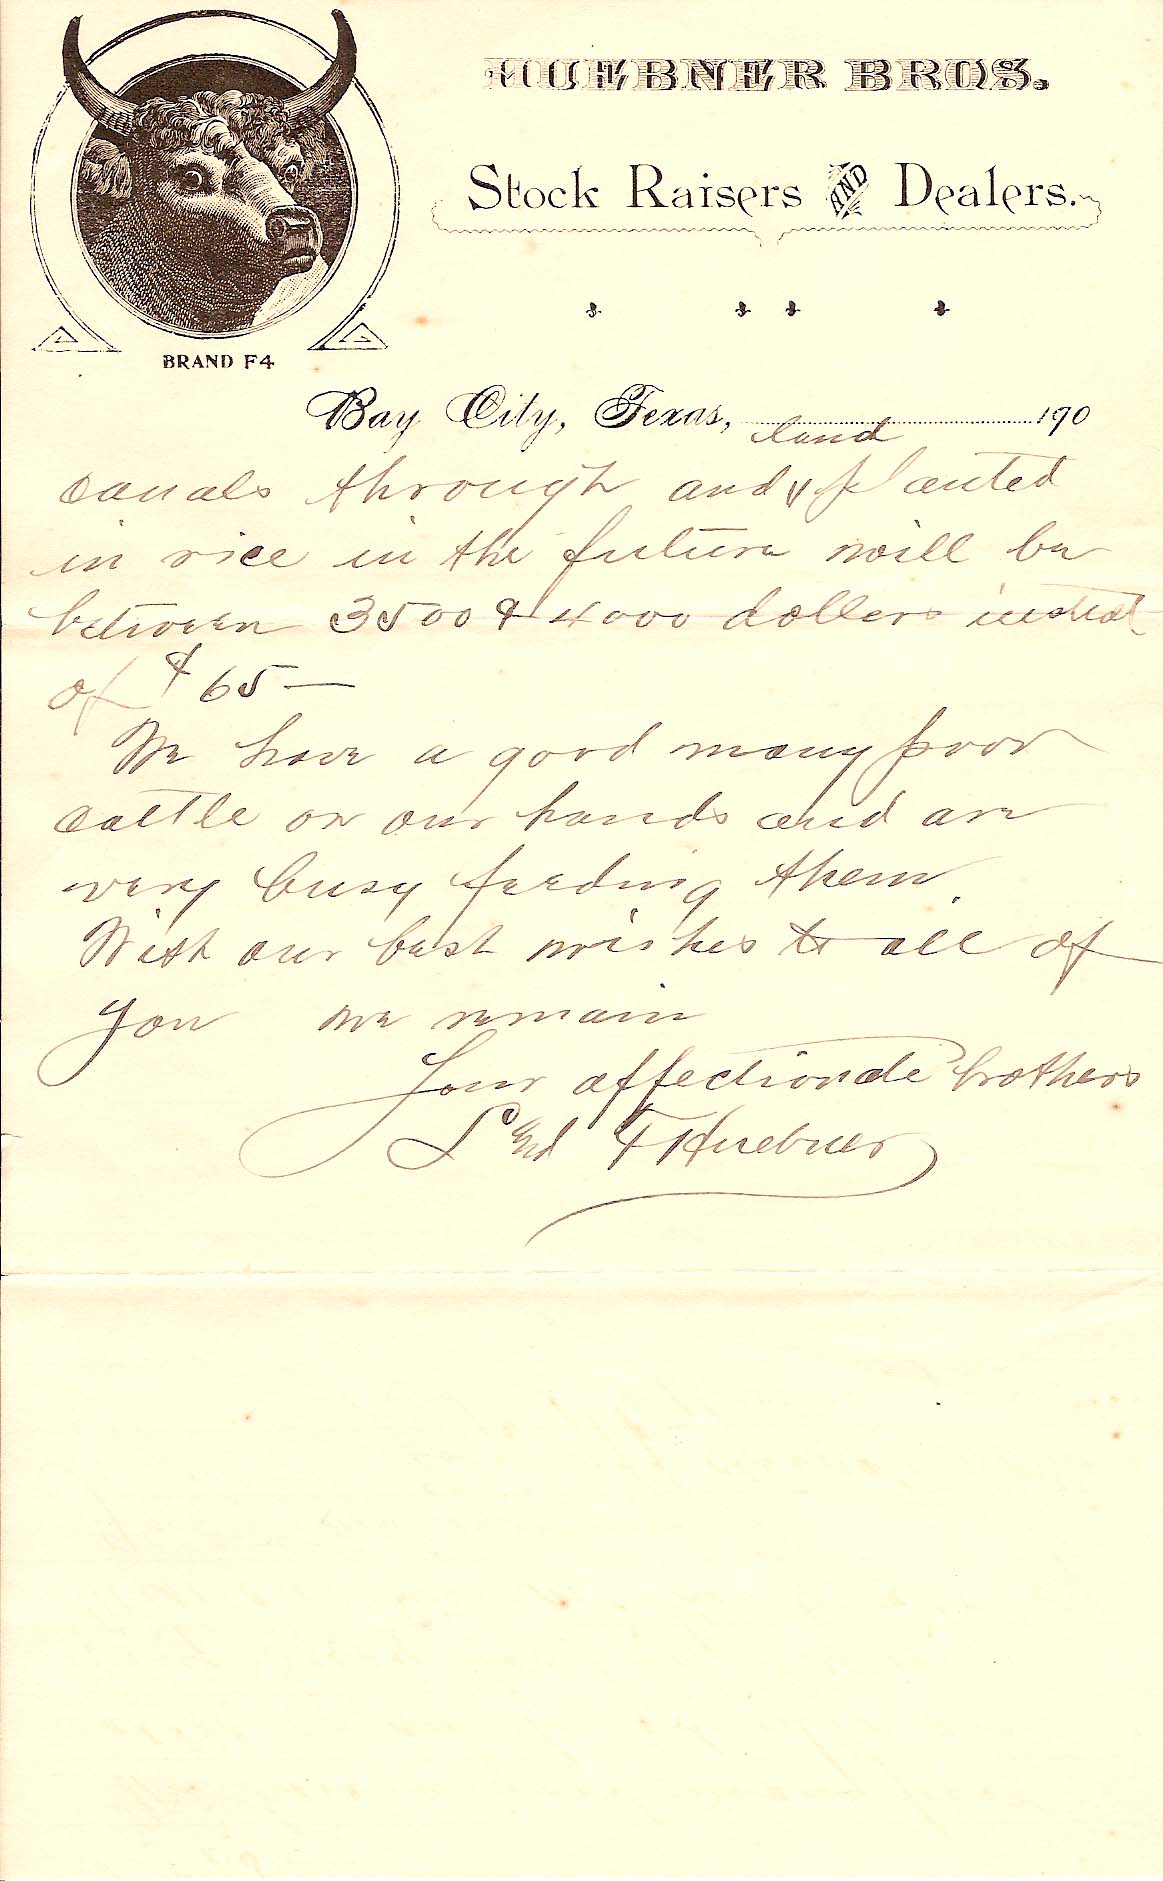 HUEBNER BROS.
Stock Raisers AND Dealers.
BRAND F4
Bay City, Texas, 190
land
canals through and planted
in rice in the future will be
between 3500 & 4000 dollers instead
of $65—
We have a good many poor
cattle on our hands and are
very busy feeding them.
With our best wishes to all of
you we remain
Your affectionate brothers
F Huebner